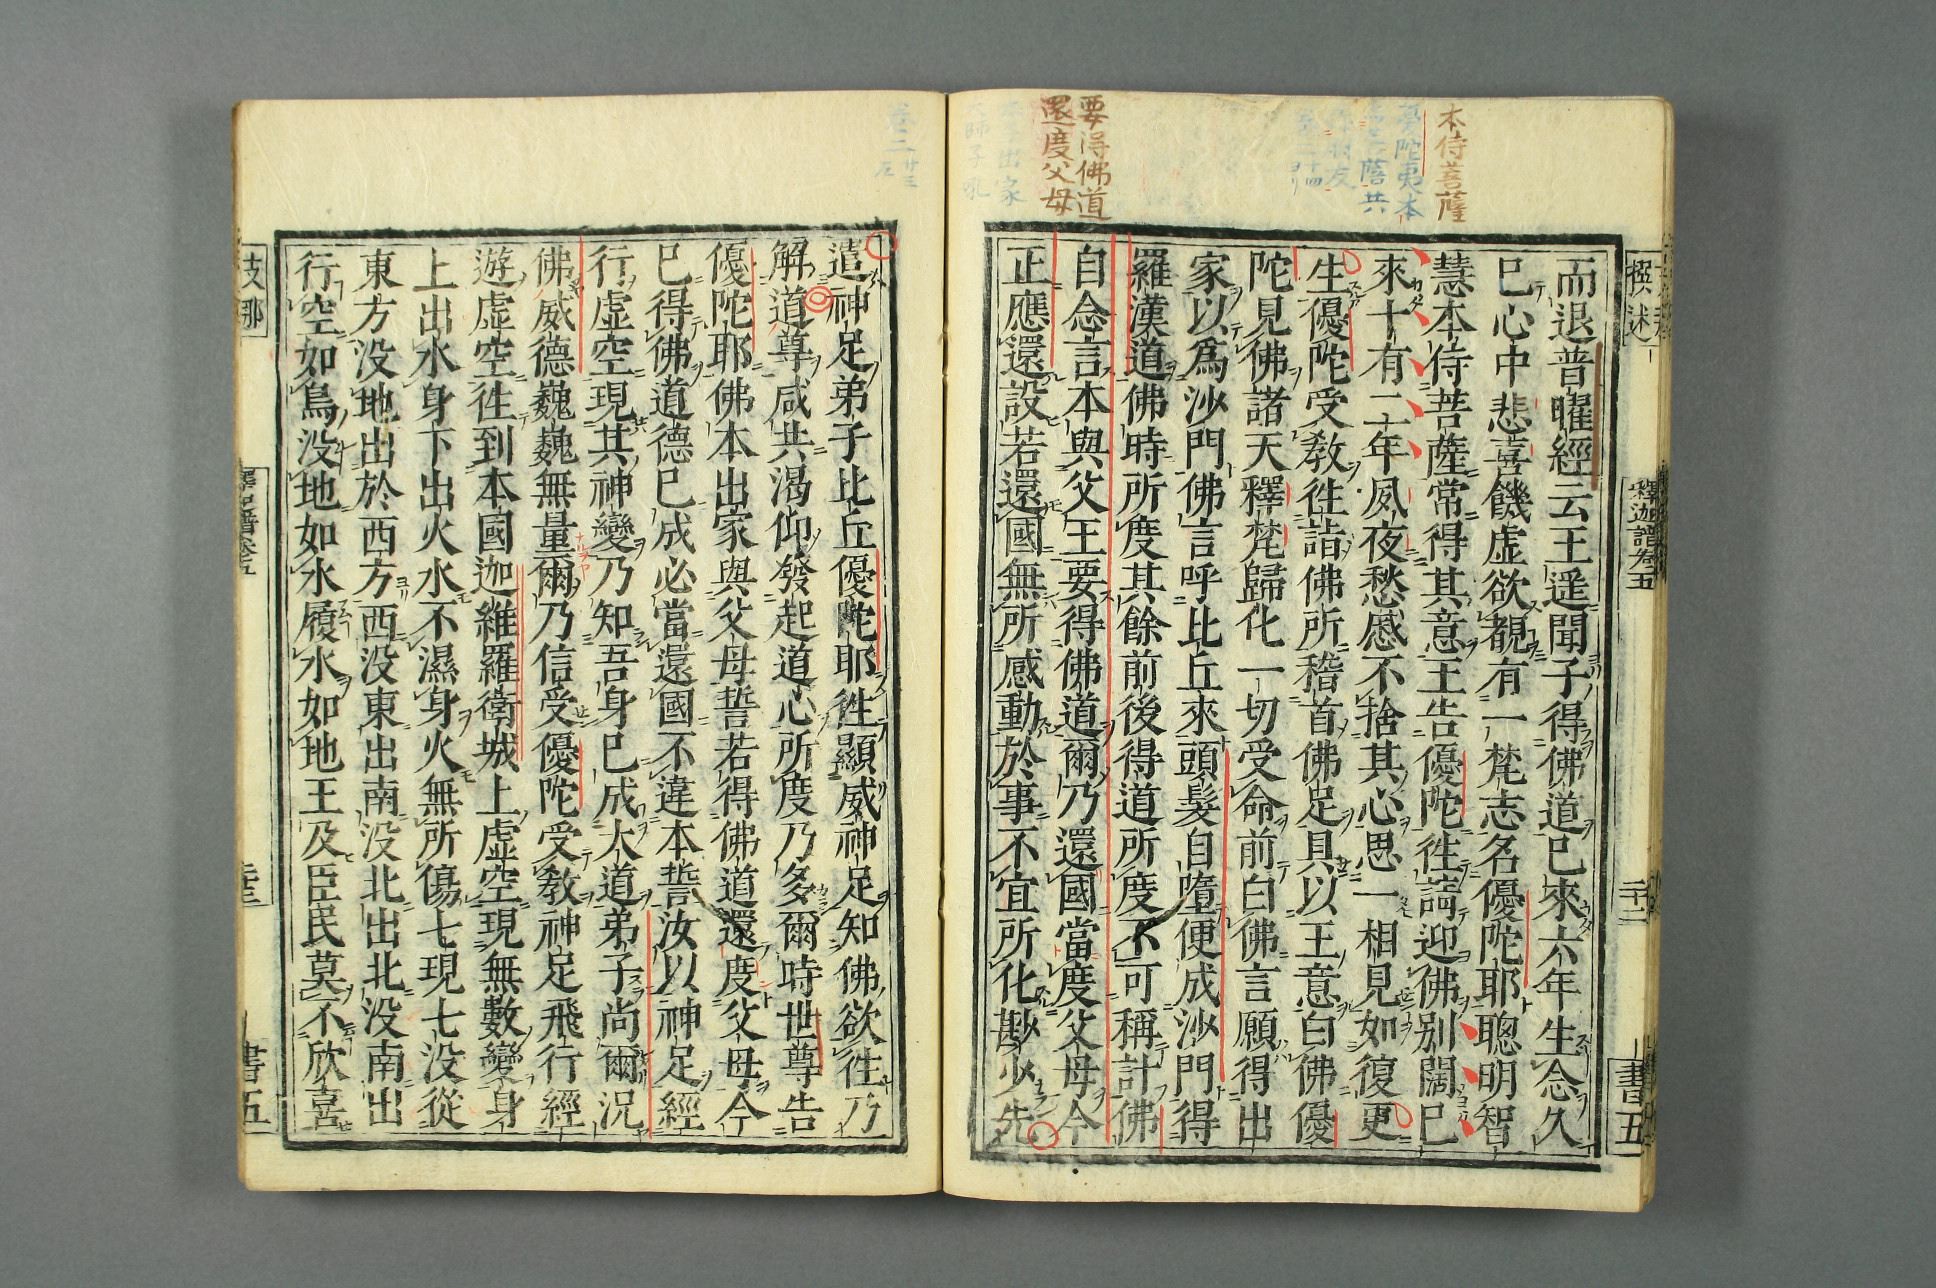 本侍菩薩
要得佛道
還度父母
撰述
釋迦譜卷五
二十二
書五
而退普曜經云王遥聞子得佛道已來六年生念久
已心中悲喜饑虚欲覩有一梵志名優陀耶聰明智
慧本侍菩薩常得其意王告優陀徃請迎佛别闊已
來十有二年夙夜愁慼不捨其心思一相見如復更
生優陀受教徃詣佛所稽首佛足具以王意白佛優
陀見佛諸天釋梵歸化一切受命前白佛言願得出
家以爲沙門佛言呼比丘來頭髮自墮便成沙門得
羅漢道佛時所度其餘前後得道所度不可稱計佛
自念言本與父王要得佛道爾乃還國當度父母今
正應還設若還國無所感動於事不宜所化尠少先
遣神足弟子比丘優陀耶徃顯威神足知佛欲徃乃
解道尊咸共渴仰發起道心所度乃多爾時世尊告
優陀耶佛本出家與父母誓若得佛道還度父母今
已得佛道德已成必當還國不違本誓汝以神足經
行虚空現其神變乃知吾身已成大道弟子尚爾况
佛威德巍巍無量爾乃信受優陀受教神足飛行經
遊虚空徃到本國迦維羅衛城上虚空現無數變身
上出水身下出火水不濕身火無所傷七現七没從
東方没地出於西方西没東出南没北出北没南出
行空如鳥没地如水履水如地王及臣民莫不欣喜
支那
書五